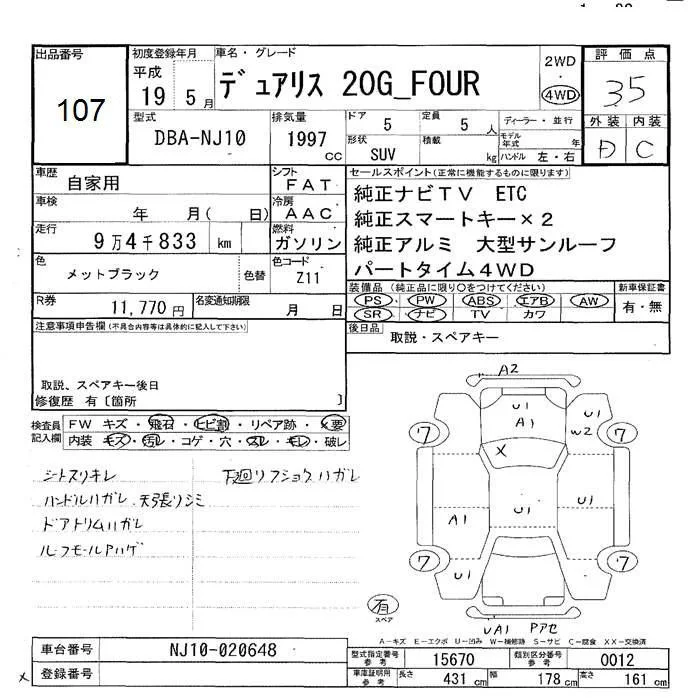 出品番号 初度登録年月 車名・グレード 2WD ・ 4WD 評価点
107 平成 19 5月 デュアリス 20G_FOUR 35
型式 DBA-NJ10 排気量 1997 cc ドア 5 定員 5 人 ディーラー・並行 外装 内装
形状 SUV 積載 kg モデル年式 年 ハンドル 左・右 D C
車歴 自家用 シフト FAT セールスポイント(正常に機能するものに限ります)
車検 年 月( 日) 冷房 AAC 純正ナビTV ETC
純正スマートキー×2
走行 9万4千833 km 燃料 ガソリン 純正アルミ 大型サンルーフ
色 メットブラック 色替 色コード Z11 パートタイム4WD
装備品(純正品に限り○をつけてください) 新車保証書
PS PW ABS エアB AW 有・無
SR ナビ TV カワ
R券 11,770円 名変通知期限 月 日
注意事項申告欄(不具合内容等は具体的に記入して下さい) 後日品 取説・スペアキー
取説、スペアキー後日
修復歴 有〔箇所 〕
検査員記入欄 FW キズ・飛石・ヒビ割・リペア跡・×要
内装 キズ・汚レ・コゲ・穴・スレ・キレ・破レ
シトスリキレ 下廻リフショクハガレ
ハンドルハガレ、天張リシミ
ドアトリムハガレ
ルーフモールPハゲ
A2
U1 A1 U1 W2
7 7
X
A1 U1 U1
7 7
U1
有 スペア
UA1 Pアセ
A-キズ E-エクボ U-凹み W-補修跡 S-サビ C-腐食 XX-交換済
車台番号 NJ10-020648 型式指定番号 参考 15670 個別区分番号 参考 0012
登録番号 車庫証明用 参考 長さ 431 cm 幅 178 cm 高さ 161 cm